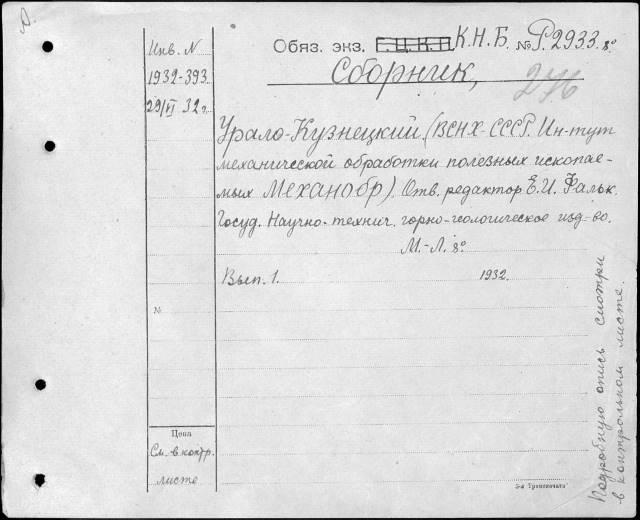 Инв. N
1932-393
29/VI 32 г.
Обяз. экз. Г.Ц.К.П. К.Н.Б. № Р.2933. 8°
Сборник,
276
Урало-Кузнецкий (ВСНХ-СССР. Ин-тут
механической обработки полезных ископае-
мых Механобр). Отв. редактор Е.И. Фальк.
Госуд. Научно-технич. горно-геологическое изд-во.
М.-Л. 8°
Вып. 1. 1932.
№
Цена
См. в контр.
листе
Подробную опись смотри
в контрольном листе.